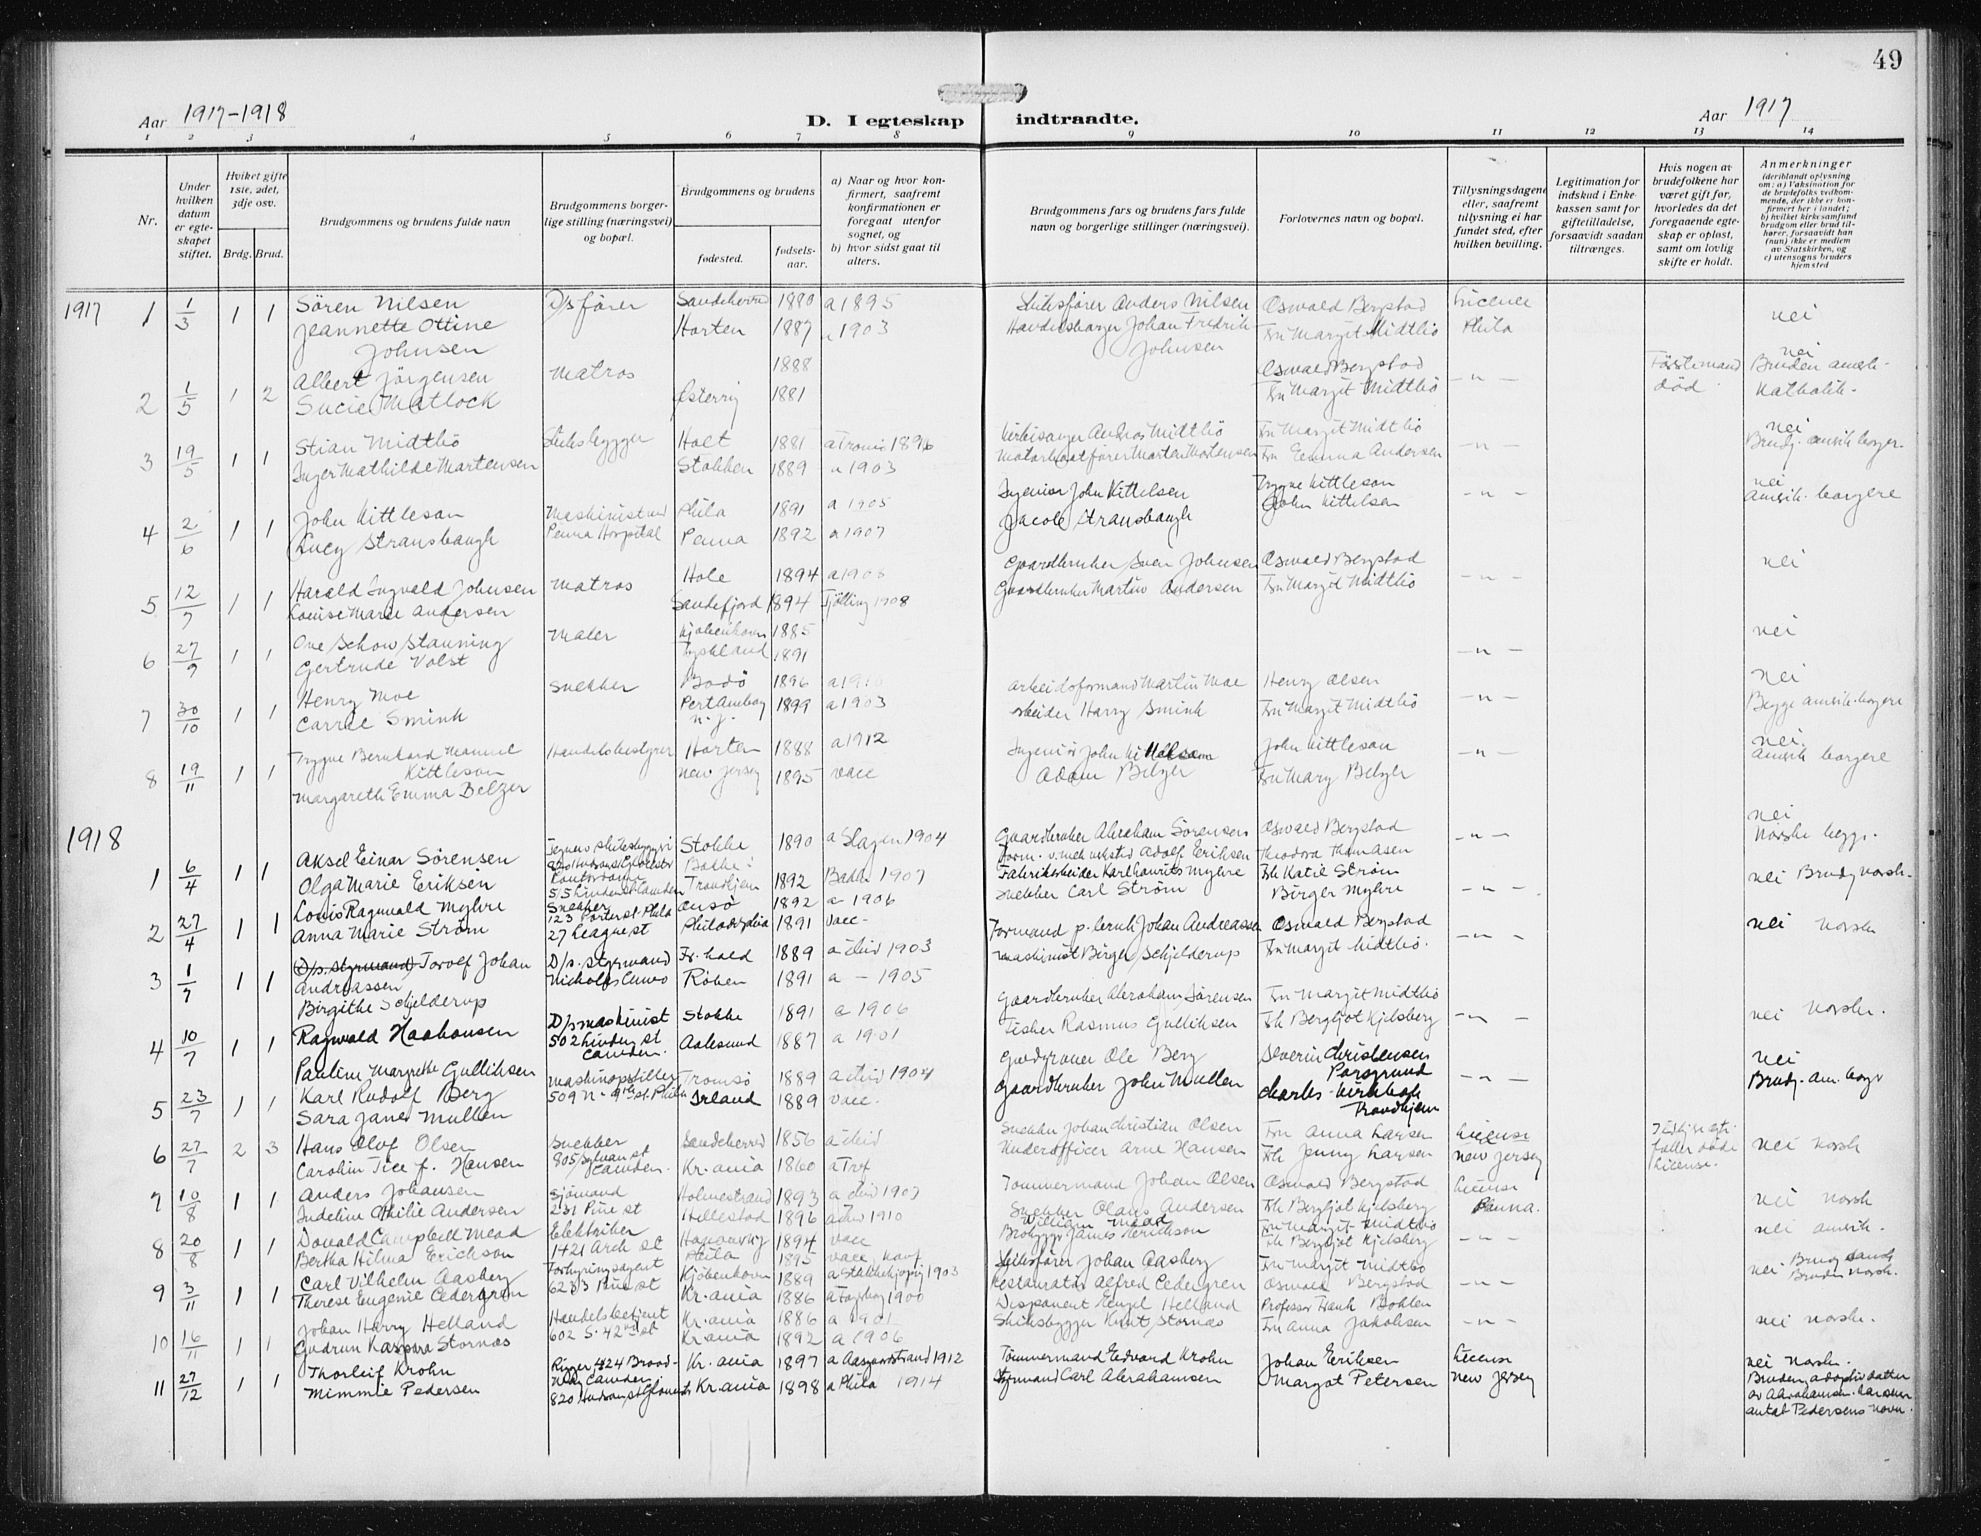 49
Aar 1917-1918
D. I egteskap indtraadte.
Aar 1917
1 2 3 4 5 6 7 8 9 10 11 12 13 14
Nr.
Under hvilken datum er egteskapet stiftet.
Hvilket gifte 1ste, 2det, 3dje osv.
Brdg. Brud.
Brudgommens og brudens fulde navn
Brudgommens borgerlige stilling (næringsvei) og bopæl.
Brudgommens og brudens
fødested.
fødselsaar.
a) Naar og hvor konfirmert, saafremt konfirmationen er foregaat utenfor sognet, og
b) hvor sidst gaat til alters.
Brudgommens fars og brudens fars fulde navn og borgerlige stillinger (næringsvei).
Forlovernes navn og bopæl.
Tillysningsdagene eller, saafremt tillysning ei har fundet sted, efter hvilken bevilling.
Legitimation for indskud i Enkekassen samt for giftetilladelse, forsaavidt saadan tiltrænges.
Hvis nogen av brudefolkene har været gift før, hvorledes da det foregaaende egteskap er opløst, samt om lovlig skifte er holdt.
Anmerkninger (deriblandt oplysning om: a) Vaksination for de brudefolks vedkommende, der ikke er konfirmert her i landet; b) hvilket kirkesamfund brudgom eller brud tilhører, forsaavidt han (hun) ikke er medlem av Statskirken, og c) utensogns bruders hjemsted
1917
1 1/3 1 1 Sören Nilsen D/s fører Sandeherred 1880 a 1895 Skibsfører Anders Nilsen Oswald Bergstad Licence nei
Jeannette Ottine Johnsen Horten 1887 " 1903 Johan Fredrik Johnsen Fru Margit Midtliö Phila
2 1/5 1 2 Albert Jörgensen Matros 1888 Oswald Bergstad - " - Förstemand död nei
Matlock Österrig 1881 Fru Margit Midtliö Bruden Katholik.
3 19/5 1 1 Stian Midtliö Skibsbygger Holt 1881 1896 Kirkesanger Andreas Midtliö Fru Margit Midtliö - " - nei
Inger Mathilde Martensen Stokken 1889 " 1903 Motorbaatfører Morten Mortensen Fru Emma Andersen Brudg. amrik borger
4 2/6 1 1 John Kittleson Maskinist ved Phila 1891 a 1905 Ingeniør John Kittelsen Trygve Kittleson - " - nei
Lucy Stransbaugh Penna Hospital Penna 1892 a 1907 Jacob Stransbaugh John Kittelsen Amrik. borgere
5 12/7 1 1 Harald Ingvald Johnsen Matros Hole 1894 a 1908 Gaardbruker Sven Johnsen Oswald Bergstad - " - nei
Louise Marie Andersen Sandefjord 1894 Tjölling 1908 Gaardbruker Martin Andersen Fru Margit Midtliö
6 27/9 1 1 Ove Schow Stauning Maler Kjöbenhavn 1885 - " - nei
Gertrude Volst Tyskland 1891
7 30/10 1 1 Henry Moe Snekker Bodö 1896 a 1910 Arbeidsformand Martin Moe Henry Olsen - " - nei
Carrie Smink Pert Amboy N.J. 1899 a 1903 Arbeider Harry Smink Fru Margit Midtliö Begge amrik. borgere
8 19/11 1 1 Trygve Bernhard Manuel Kittleson Handelsbestyrer Horten 1888 a 1912 Ingeniör John Kittelsen John Kittleson - " - nei.
Margareth Emma Belzer New Jersey 1895 vacc Adam Belzer Fru Mary Belzer Amrik borgere
1918
1 6/4 1 1 Aksel Einar Sörensen Stokke 1890 a Slagen 1904 Gaardbruker Abraham Sörensen Oswald Bergstad - " - nei
Olga Marie Eriksen 1892 1907 Adolf Eriksen Theodora Thomasen Norske begge.
2 27/4 1 1 Louis Ragnvald Myhre Snekker 123 Porter st. Phila 1892 a 1906 Fabrikarbeider Karl Laurits Myhre Frk Katie Ström - " - nei Brudg norsk.
Anna Marie Ström 27 League st Philadelphia 1891 vacc. Snekker Carl Ström Birger Myhre
3 1/7 1 1 D/s. styrmand Torolf Johan Andreassen D/s. styrmand Fr.hald 1889 a 1903 Formand Johan Andreassen Oswald Bergstad - " - nei norsk
Birgithe Schjelderup Röken 1891 a - 1905 Maskinist Birger Schjelderup Fru Margit Midtliö.
4 10/7 1 1 Ragnvald Haakonsen D/s maskinist Stokke 1891 a 1906 Gaardbruker Abraham Sörensen Fru Margit Midtliö - " - nei norsk.
Pauline Margrethe Gulliksen 502 Linden st Camden. Aalesund 1887 a 1901 Fisker Rasmus Gulliksen Frk Bergljot Kjelsberg
5 23/7 1 1 Karl Rudolf Berg Maskinopstiller Tromsö 1889 1904 Ole Berg Severin Christensen Porsgrund - " - nei
Sara Jane Mullen 509 N. 9th st. Phila Irland 1889 vacc. Gaardbruker John Mullen Charles Kirkholt Trondhjem Brudg. am. borger
6 27/7 2 3 Hans Olof Olsen Snekker Sandeherred 1856 Snekker Johan Christian Olsen Fru Anna Larsen License nei norsk
Carolin Tice f. Hansen 805 Sylvan st Camden. Kr.ania 1860 Underofficer Arne Hansen Frk Jenny Larsen New Jersey License.
7 10/8 1 1 Anders Johansen Sjömand Holmestrand 1893 1907 Tömmermand Johan Olsen Oswald Bergstad License nei norsk
Othilie Andersen 231 Pine st Hillestad 1896 1910 Snekker Olaus Andersen Frk Bergljot Kjelsberg Penna.
8 20/8 1 1 Donald Campbell Mead Elektriker 1894 vacc William Mead Fru Margit Midtliö - " - nei amrik.
Bertha Hilma Erichson 1421 Arch st Phila 1895 vacc konf James Erickson Frk Bergljot Kjelsberg
9 3/11 1 1 Carl Vilhelm Aasberg Forhyringsagent Kjöbenhavn 1889 1903 Skibsförer Johan Aasberg Fru Margit Midtliö - " - nei. Brudg dansk
Therese Eugenie Cedergren 6233 Pine st Kr.ania 1886 1900 Restauratör Alfred Cedergren Oswald Bergstad Bruden norsk.
10 16/11 1 1 Johan Harry Helland Handelsbetjent Kr.ania 1886 a 1901 Disponent Helland Professor Frank Bohlen - " - nei norsk.
Gudrun Kaspara Stornæs 602 S. 42nd st Kr.ania 1892 a 1906 Skibsbygger Knut Stornæs Fru Anna Jakobsen
11 27/12 1 1 Thorleif Krohn 424 Broadway Camden Kr.ania 1897 a Aasgaardstrand 1912 Tömmermand Edvard Krohn Johan Eriksen License nei norsk.
Mimmie Pedersen 820 Hudson st Kr.ania 1898 a Phila 1914 Styrmand Carl Abrahamsen Margot Petersen New Jersey Bruden adoptivdatter av Abrahamsen. har antat Pedersens navn.